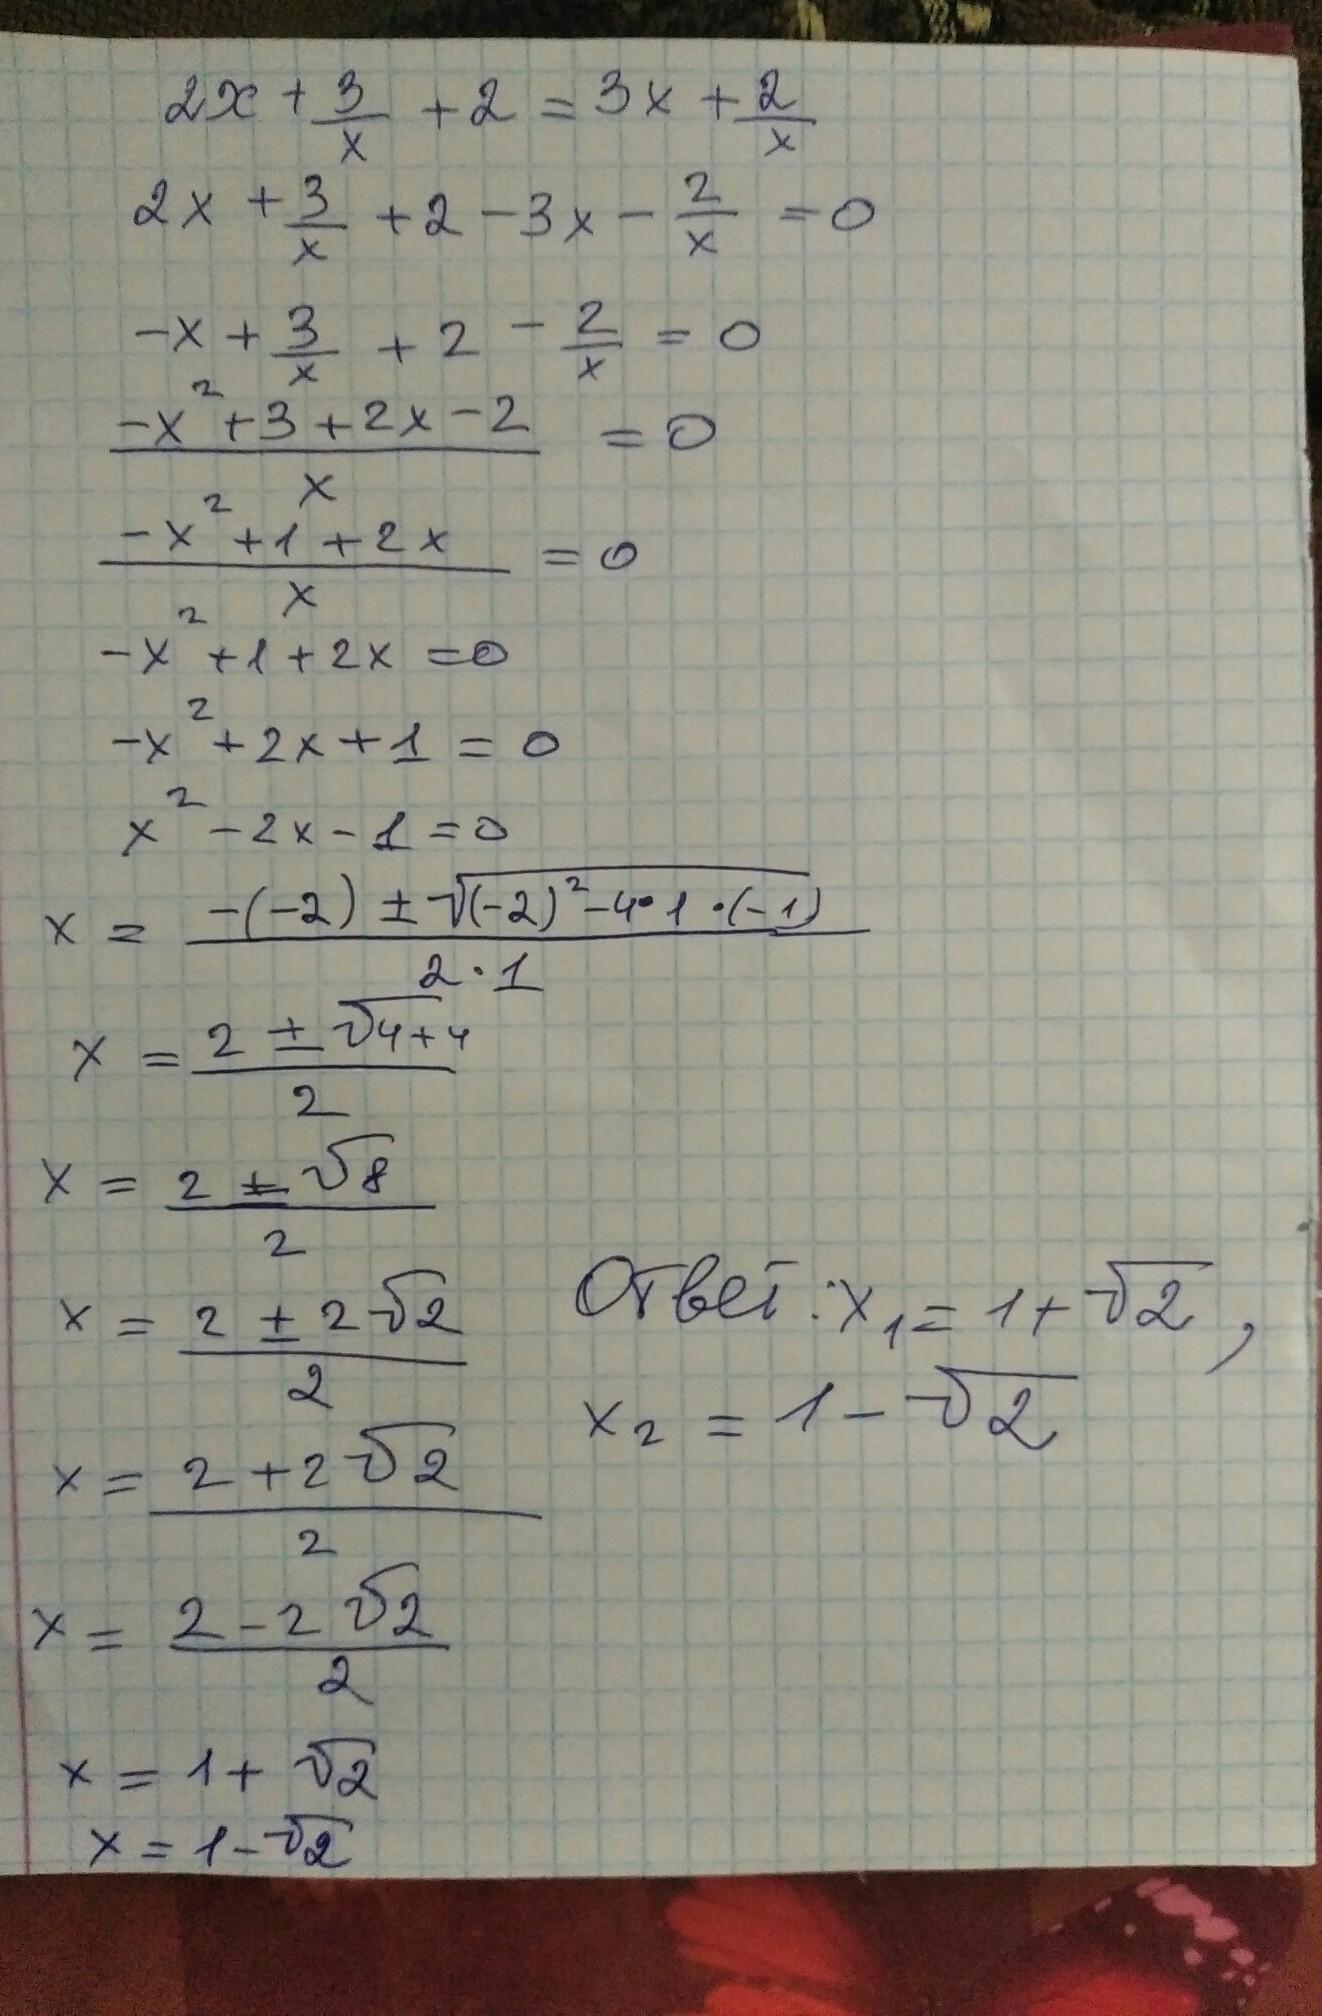 2x + 3/x + 2 = 3x + 2/x
2x + 3/x + 2 - 3x - 2/x = 0
-x + 3/x + 2 - 2/x = 0
(-x² + 3 + 2x - 2)/x = 0
(-x² + 1 + 2x)/x = 0
-x² + 1 + 2x = 0
-x² + 2x + 1 = 0
x² - 2x - 1 = 0
x = (-(-2) ± √((-2)² - 4·1·(-1)))/(2·1)
x = (2 ± √(4+4))/2
x = (2 ± √8)/2
x = (2 ± 2√2)/2
x = (2 + 2√2)/2
x = (2 - 2√2)/2
x = 1 + √2
x = 1 - √2
Ответ: x₁ = 1 + √2,
x₂ = 1 - √2